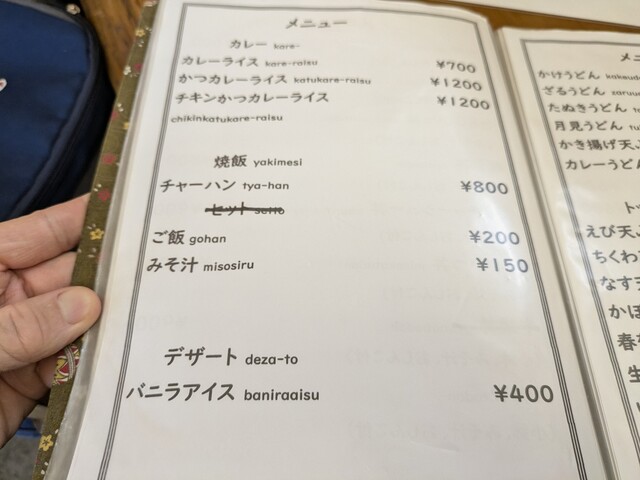 メニュー
カレー kare-
カレーライス kare-raisu ¥700
かつカレーライス katukare-raisu ¥1200
チキンかつカレーライス ¥1200
chikinkatukare-raisu
焼飯 yakimesi
チャーハン tya-han ¥800
セット setto
ご飯 gohan ¥200
みそ汁 misosiru ¥150
デザート deza-to
バニラアイス baniraaisu ¥400
メニ
かけうどん kakeud
ざるうどん zaruu
たぬきうどん
月見うどん
かき揚げ天
カレーうどん
えび天
ちくわ
なす
かぼ
春
生